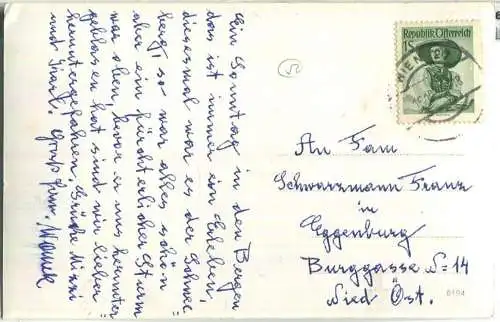 Ein Sonntag in den Bergen
das ist immer ein Erleben,
diesesmal war es der Schnee
bergt so war alles schön
aber ein fürchterlicher Sturm
war oben, bevor er uns herunter
geblasen hat sind wir lieber
heruntergefahren. Mizzi
und Karl.
Republik Österreich
1S
WIEN
An Fam
Schwarzmann Franz
in
Eggenburg
Burggasse N=14
Nied Öst.